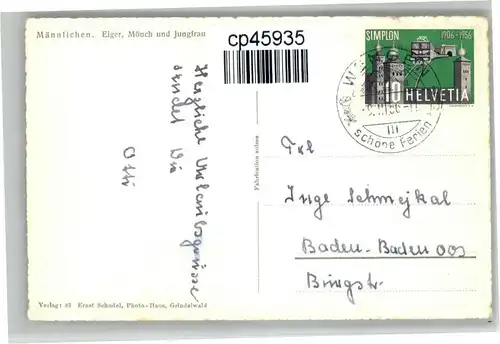 Männlichen. Eiger, Mönch und Jungfrau
cp45935
SIMPLON 1906-1956
10 HELVETIA
schöne Ferien
Herzliche Urlaubsgrüsse
sendet Dir
Otti
Fabrication suisse
Frl
Inge Schmejkal
Baden-Baden OOS
Bingstr.
Verlag: 83 Ernst Schudel, Photo-Haus, Grindelwald